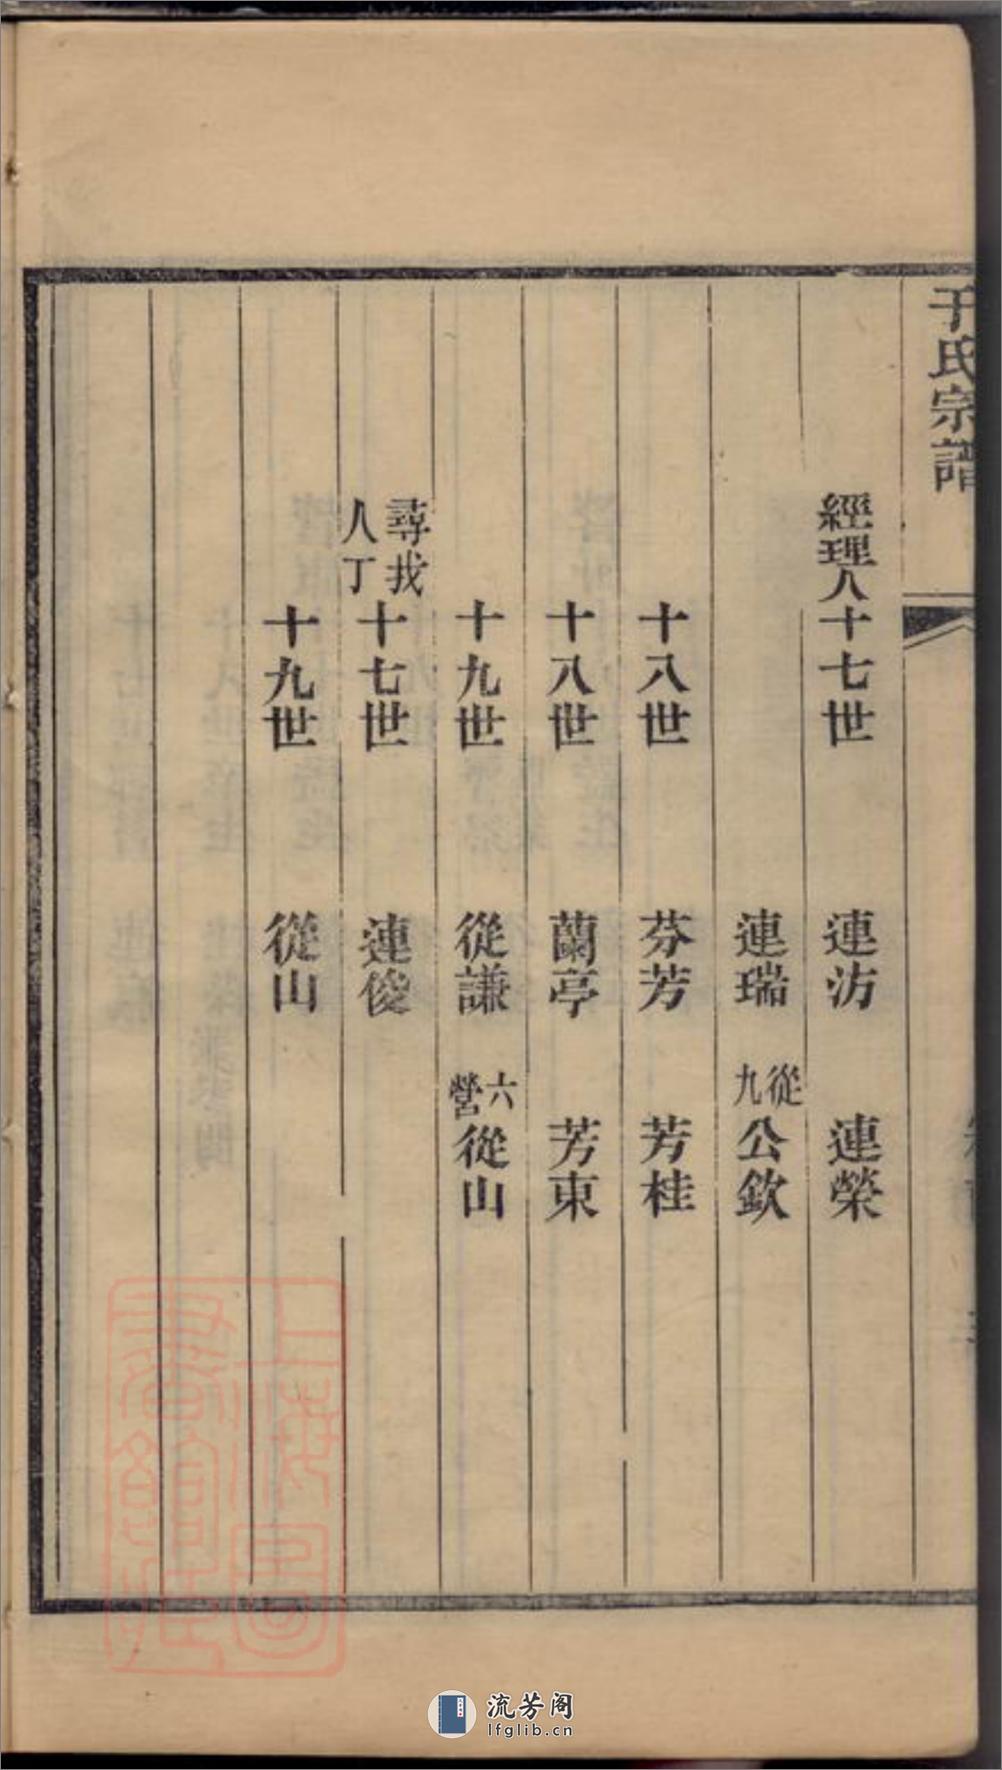 于氏宗譜
經理人十七世 連汸 連榮
連瑞 從九公欽
十八世 芬芳 芳桂
十八世 蘭亭 芳東
十九世 從謙 六營從山
尋找人丁十七世 連俊
十九世 從山
上海圖書館藏
流芳阁
lfglib.cn